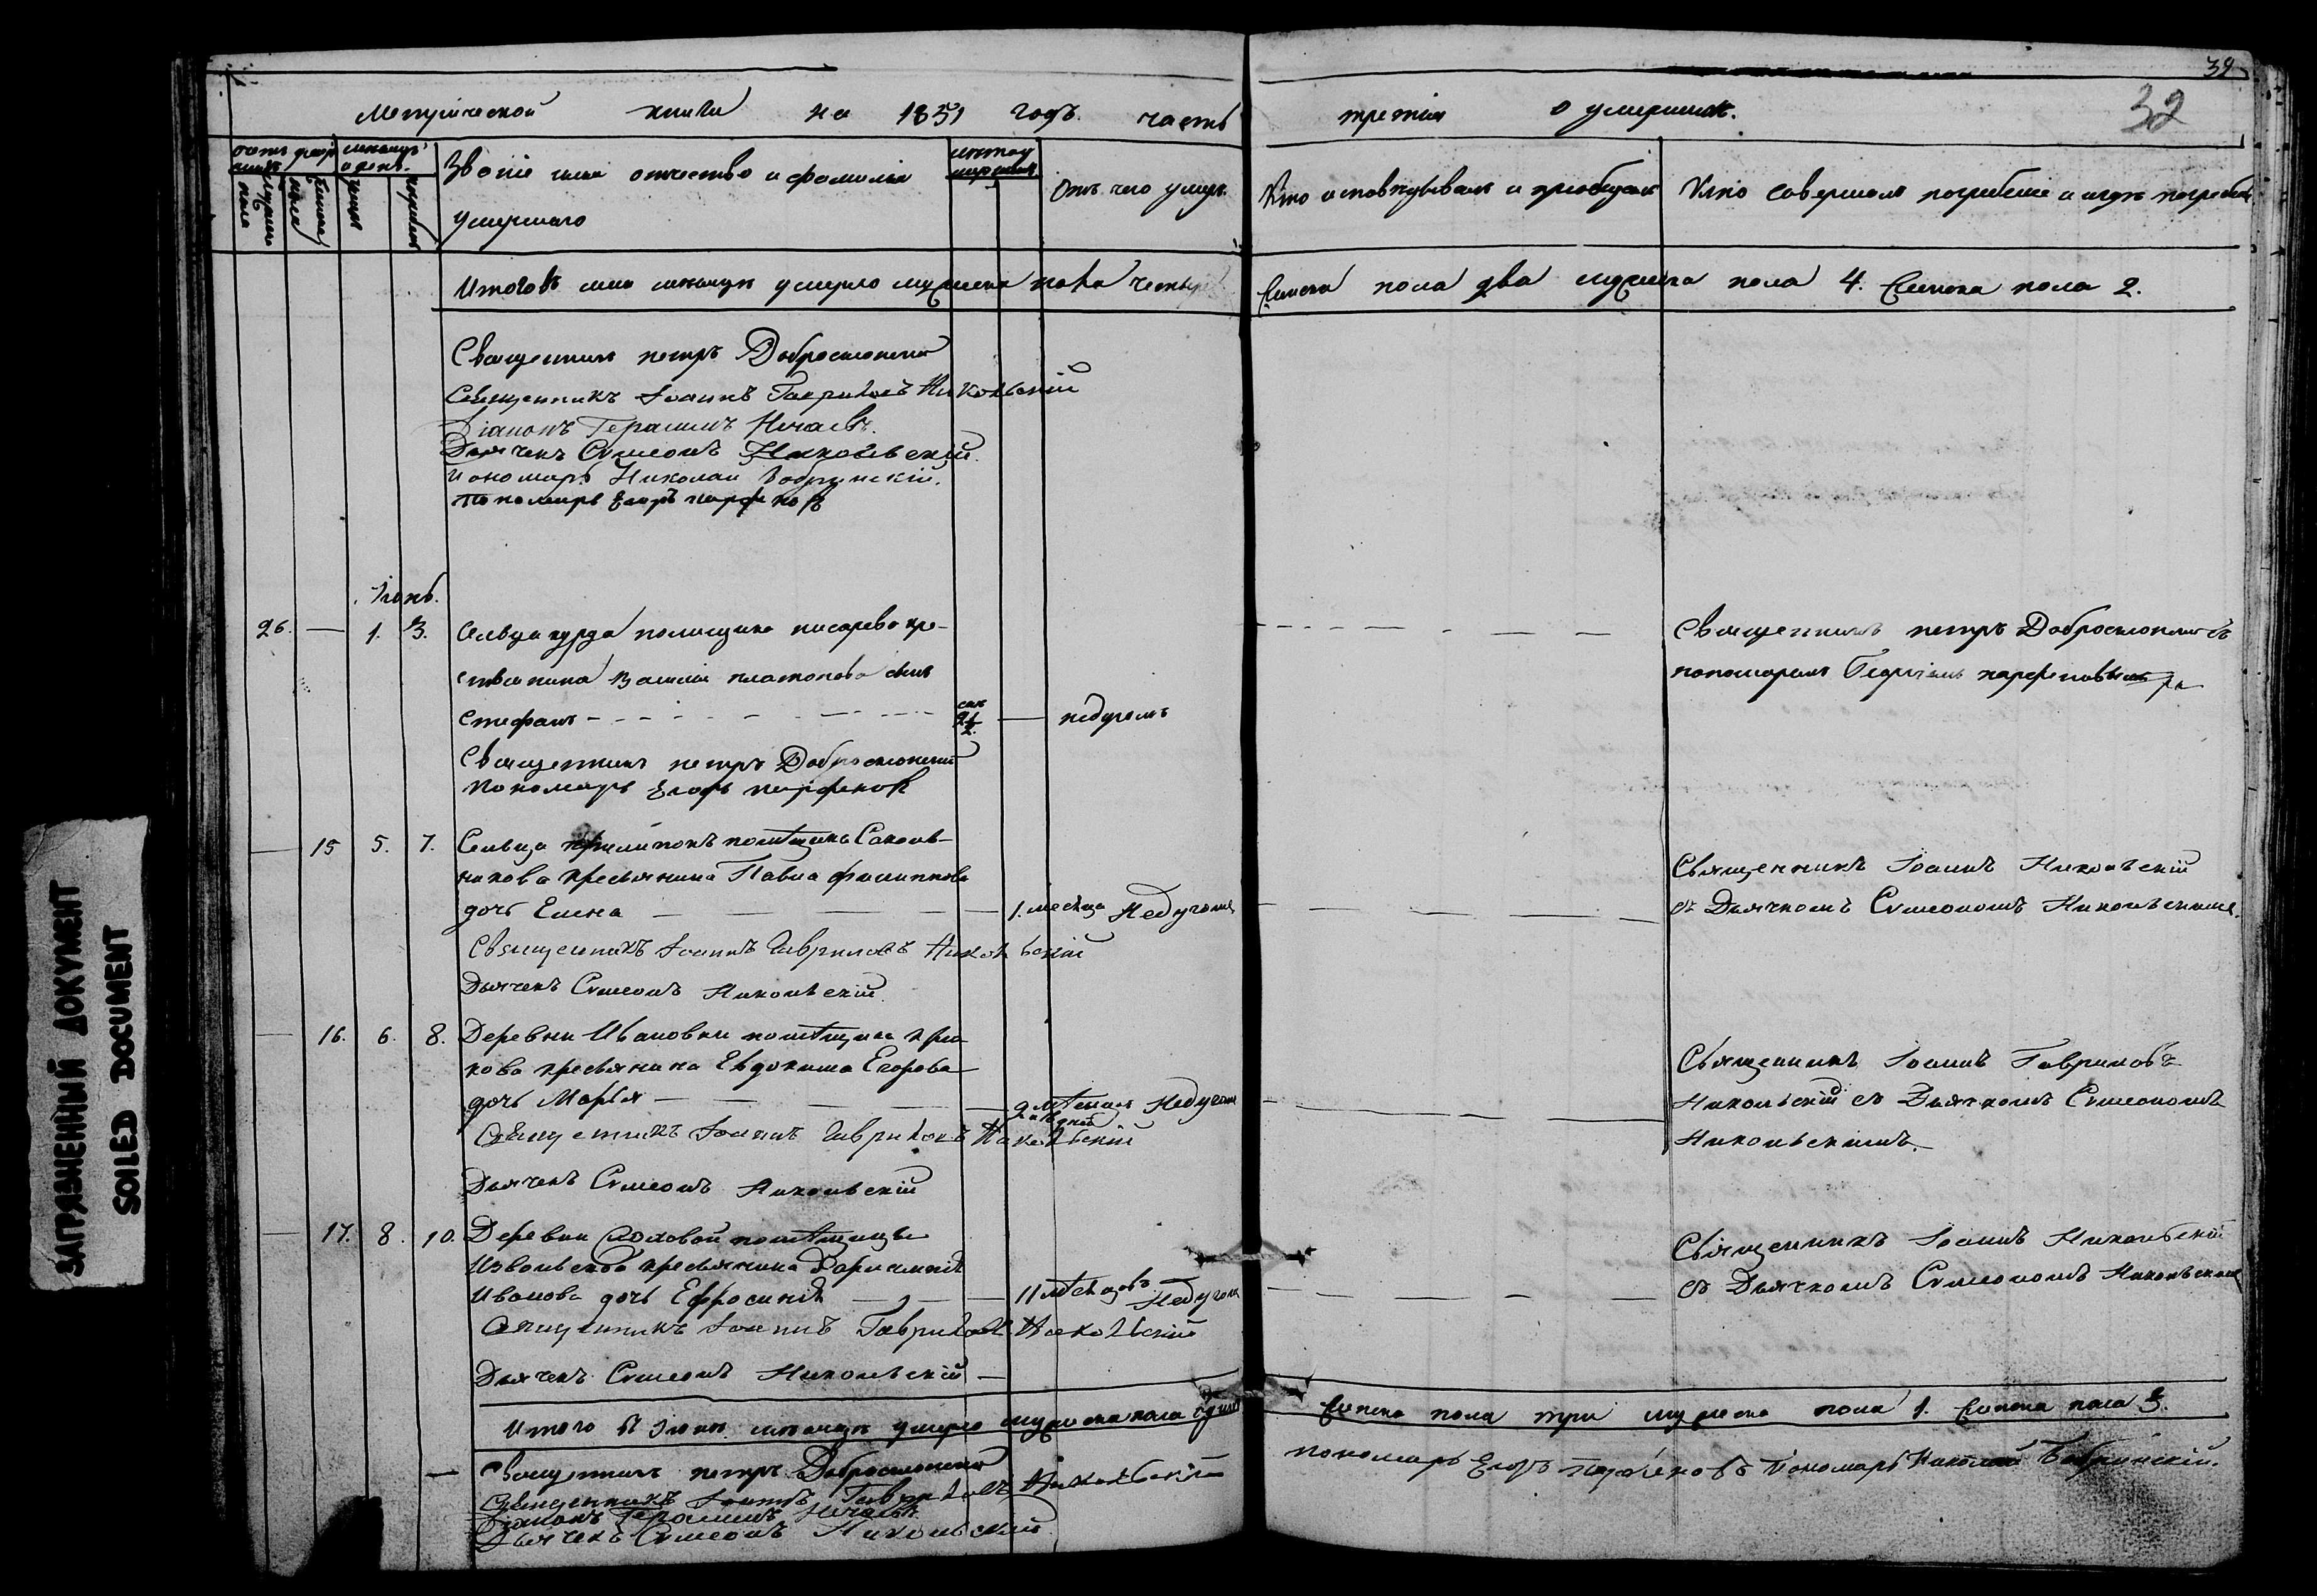 39
32
Метрической книги на 1851 годъ часть третія о умершихъ.
счетъ умер
шихъ
мужеска
пола
женска
пола
мѣсяцъ
и день.
смерти
погребен
Званіе имя отчество и фамилія
умершаго
лѣта у
мершаго
Отъ чего умеръ
Кто исповѣдывалъ и пріобщалъ
Кто совершалъ погребеніе и гдѣ погребены
Итого въ маѣ мѣсяцѣ умерло мужеска пола четыре женска пола два мужеска пола 4. женска пола 2.
Священникъ петръ Добросмысловъ
Священникъ Іоаннъ Гавриловъ Никольскій
Діаконъ Герасимъ Нечаевъ.
Дьячекъ Сѵмеонъ Никольскій.
Пономарь Николай Бобринскій.
Пономарь Егоръ парфеновъ
Іюнь.
26. — 1. 3. Сельца курда помещика писарева кре-
стьянина Василія платонова сынъ
Стефанъ
2 1/2
недугомъ
Священникъ петръ
пономаремъ Георгіемъ парфеновымъ
Священникъ петръ
Пономарь Егоръ парфеновъ
— 15 5. 7. Сельца помѣщика Соколь-
никова крестьянина Павла филиппова
дочь Елена — 1. месяца Недугомъ
Священникъ Іоаннъ Никольскій
съ Дьячкомъ Сѵмеономъ Никольскимъ.
Священникъ Іоаннъ Гавриловъ Никольскій
Дьячекъ Сѵмеонъ Никольскій.
— 16. 6. 8. Деревни Ивановки помѣщика
кова крестьянина Евдокима Егорова
дочь Марья — 2 мѣсяцъ Недугомъ
Священникъ Іоаннъ Гавриловъ
Никольскій съ Дьячкомъ Сѵмеономъ
Никольскимъ.
Священникъ Іоаннъ Гавриловъ Никольскій
Дьячекъ Сѵмеонъ Никольскій
— 17. 8. 10. Деревни помѣщицы
Извольской крестьянина
Иванова дочь Ефросинія — 11 мѣсяцовъ Недугомъ
Священникъ Іоаннъ Никольскій
съ Дьячкомъ Сѵмеономъ Никольскимъ
Священникъ Іоаннъ Гавриловъ Никольскій
Дьячекъ Сѵмеонъ Никольскій —
Итого въ Іюнѣ мѣсяцѣ умерло мужеска пола одинъ женска пола три мужеска пола 1. женска пола 3.
Священникъ петръ
Священникъ Іоаннъ Гавриловъ Никольскій
Діаконъ Герасимъ Нечаевъ
Дьячекъ Сѵмеонъ Никольскій
пономарь Егоръ парфеновъ Пономарь Николай Бобринскій.
ЗАГРЯЗНЕННЫЙ ДОКУМЕНТ
SOILED DOCUMENT